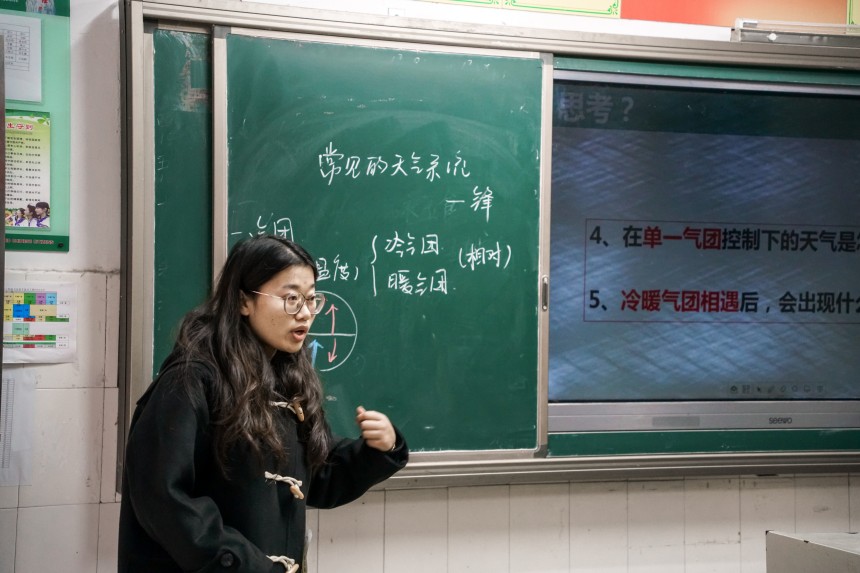 常见的天气系统
一锋
一、气团
温度)
冷气团
(相对)
暖气团
思考?
4、在单一气团控制下的天气是
5、冷暖气团相遇后，会出现什
seewo